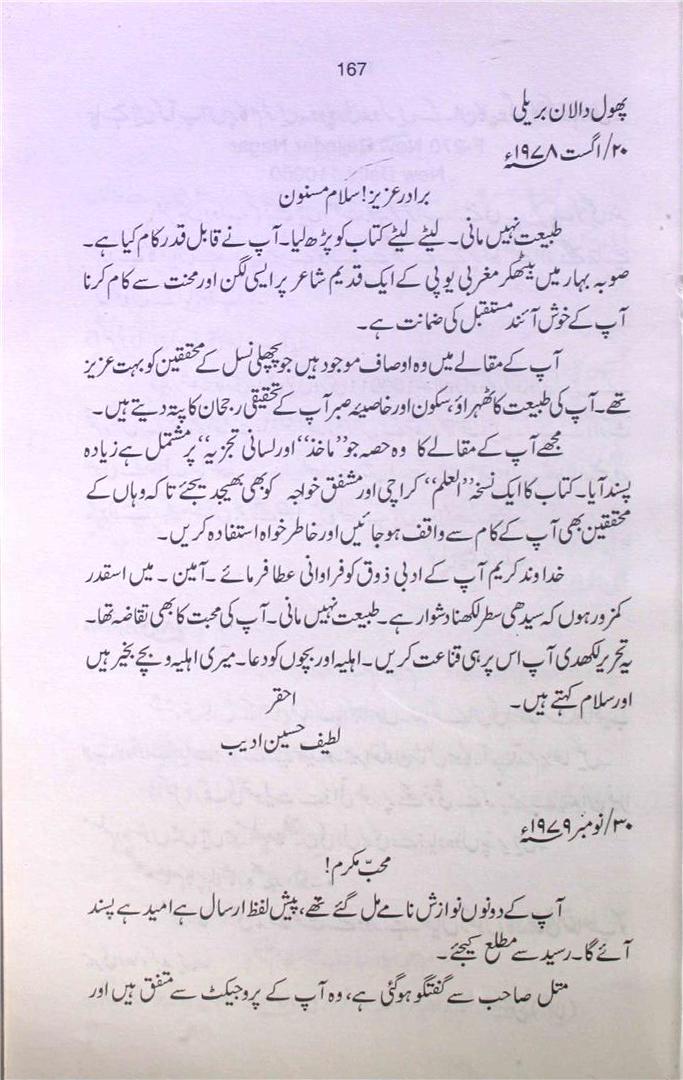 167
پھول والان بریلی
۲۰/اگست ۱۹۷۸ء
برادر عزیز! سلام مسنون
طبیعت نہیں مانی۔ لیٹے لیٹے کتاب کو پڑھ لیا۔ آپ نے قابل قدر کام کیا ہے۔
صوبہ بہار میں بیٹھکر مغربی یوپی کے ایک قدیم شاعر پر ایسی لگن اور محنت سے کام کرنا
آپ کے خوش آئند مستقبل کی ضمانت ہے۔
آپ کے مقالے میں وہ اوصاف موجود ہیں جو پچھلی نسل کے محققین کو بہت عزیز
تھے۔ آپ کی طبیعت کا ٹھہراؤ، سکون اور خاصیتہ صبر آپ کے تحقیقی رجحان کا پتہ دیتے ہیں۔
مجھے آپ کے مقالے کا وہ حصہ جو ”ماخذ“ اور لسانی تجزیہ“ پر مشتمل ہے زیادہ
پسند آیا۔ کتاب کا ایک نسخہ ”العلم“ کراچی اور مشفق خواجہ کو بھی بھیجدیجئے تاکہ وہاں کے
محققین بھی آپ کے کام سے واقف ہو جائیں اور خاطر خواہ استفادہ کریں۔
خداوند کریم آپ کے ادبی ذوق کو فراوانی عطا فرمائے۔ آمین۔ میں اسقدر
کمزور ہوں کہ سیدھی سطر لکھنا دشوار ہے۔ طبیعت نہیں مانی۔ آپ کی محبت کا بھی تقاضہ تھا۔
یہ تحریر لکھدی آپ اس پر ہی قناعت کریں۔ اہلیہ اور بچوں کو دعا۔ میری اہلیہ و بچے بخیر ہیں
اور سلام کہتے ہیں۔
احقر
لطیف حسین ادیب
۳۰/نومبر ۱۹۷۹ء
محبّ مکرم!
آپ کے دونوں نوازش نامے مل گئے تھے، پیش لفظ ارسال ہے امید ہے پسند
آئے گا۔ رسید سے مطلع کیجئے۔
متل صاحب سے گفتگو ہو گئی ہے، وہ آپ کے پروجیکٹ سے متفق ہیں اور